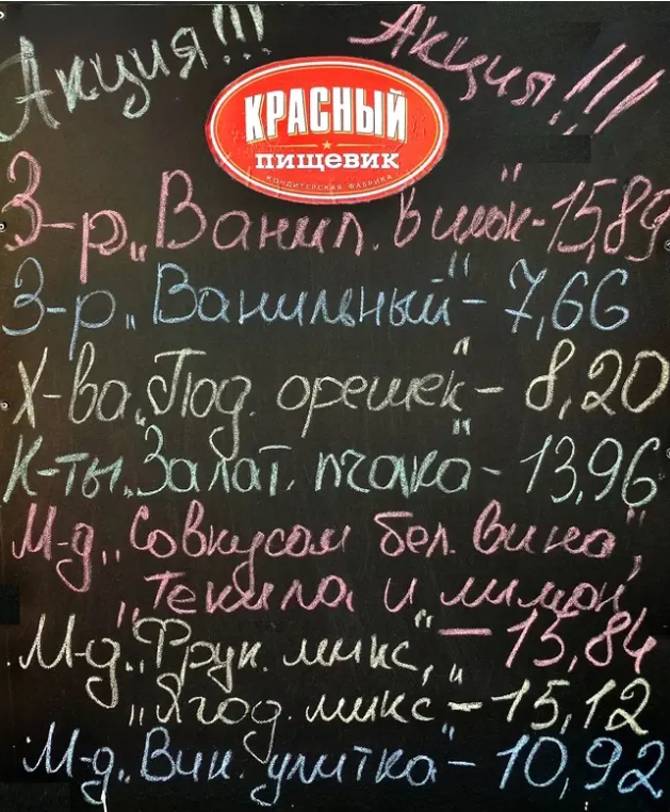 Акция!!! Акция!!!
КРАСНЫЙ
ПИЩЕВИК
КОНДИТЕРСКАЯ ФАБРИКА
З-р „Ванил. в шок" - 15,89
З-р „Ванильный" - 7,66
Х-ва „Под. орешек" - 8,20
К-ты „Залат. пчолка" - 13,96
М-д „Совкусом бел. вина",
„Текила и лимон" - 15,84
М-д „Фрук. микс",
„Ягод. микс" - 15,12
М-д „Вин. улитка" - 10,92